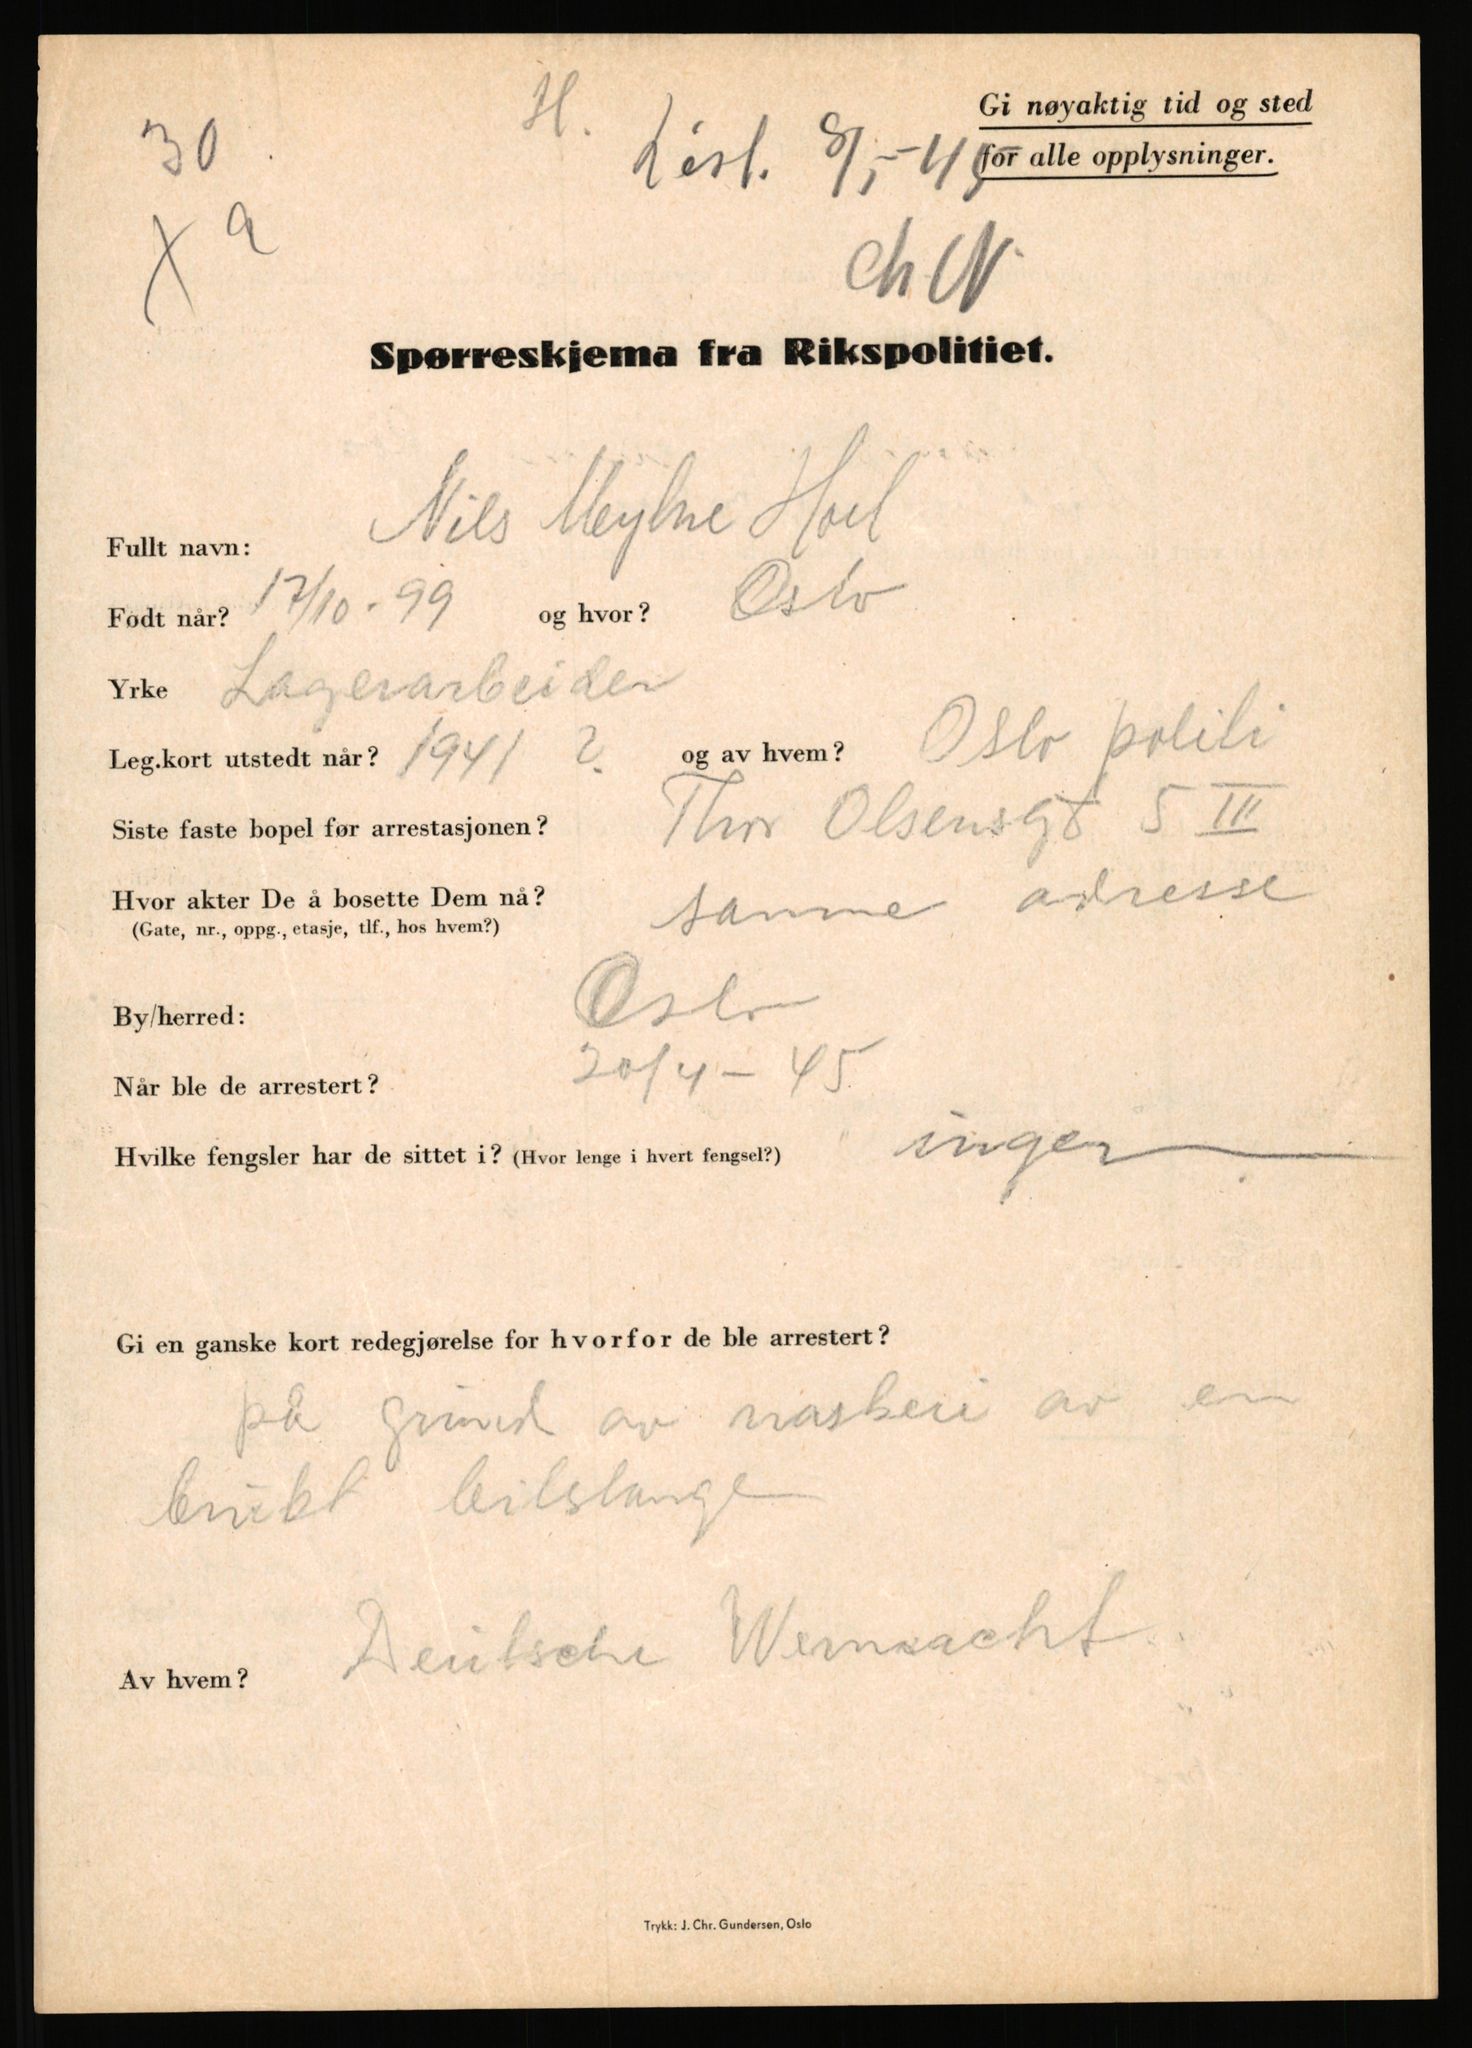 30
H.
Løsl. 8/5-45
Gi nøyaktig tid og sted
for alle opplysninger.
X a
Ch N
Spørreskjema fra Rikspolitiet.
Fullt navn: Nils Hoel
Født når? 17/10-99 og hvor? Oslo
Yrke Lagerarbeider
Leg.kort utstedt når? 1941 ? og av hvem? Oslo politi
Siste faste bopel før arrestasjonen? Thor Olsensgt 5 III
Hvor akter De å bosette Dem nå? samme adresse
(Gate, nr., oppg., etasje, tlf., hos hvem?)
By/herred: Oslo
Når ble de arrestert? 20/4-45
Hvilke fengsler har de sittet i? (Hvor lenge i hvert fengsel?) ingen
Gi en ganske kort redegjørelse for hvorfor de ble arrestert?
på grund av naskeri av en
brukt bilslange
Av hvem? Deutsche Wermacht
Trykk: J. Chr. Gundersen, Oslo